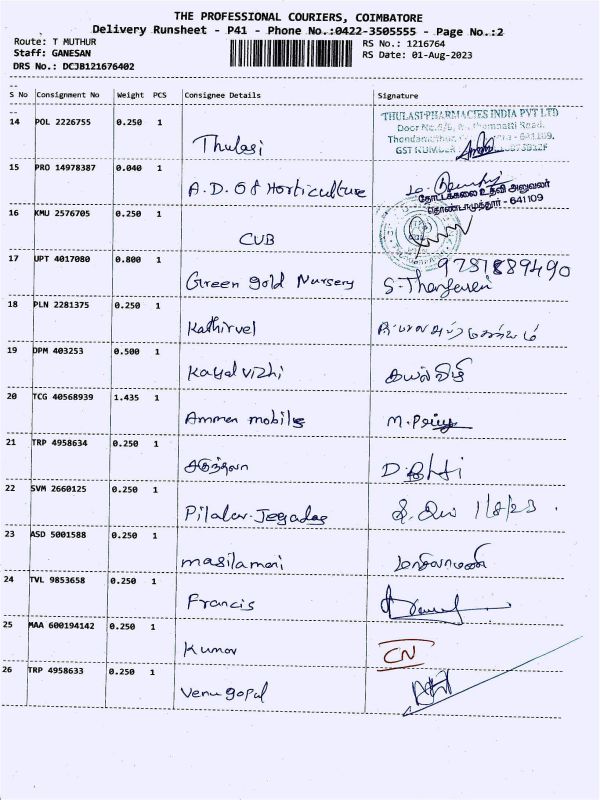 THE PROFESSIONAL COURIERS, COIMBATORE
Delivery Runsheet - P41 - Phone No.:0422-3505555 - Page No.:2
Route: T MUTHUR RS No.: 1216764
Staff: GANESAN RS Date: 01-Aug-2023
DRS No.: DCJB121676402
S No Consignment No Weight PCS Consignee Details Signature
14 POL 2226755 0.250 1
THULASI PHARMACIES INDIA PVT LTD
Thulasi
15 PRO 14978387 0.040 1
A.D. Of Horticulture
தோட்டக்கலை உதவி அலுவலர்
தொண்டாமுத்தூர் - 641109
16 KMU 2576705 0.250 1
CUB
17 UPT 4017080 0.800 1
Green gold Nursery
18 PLN 2281375 0.250 1
Kathirvel
19 DPM 403253 0.500 1
Kayalvizhi கயல்விழி
20 TCG 40568939 1.435 1
Ammen mobiles
21 TRP 4958634 0.250 1
22 SVM 2660125 0.250 1
1/8/23
23 ASD 5001588 0.250 1
masilamani மாசிலாமணி
24 TVL 9853658 0.250 1
Francis
25 MAA 600194142 0.250 1
Kumar CN
26 TRP 4958633 0.250 1
Venugopal